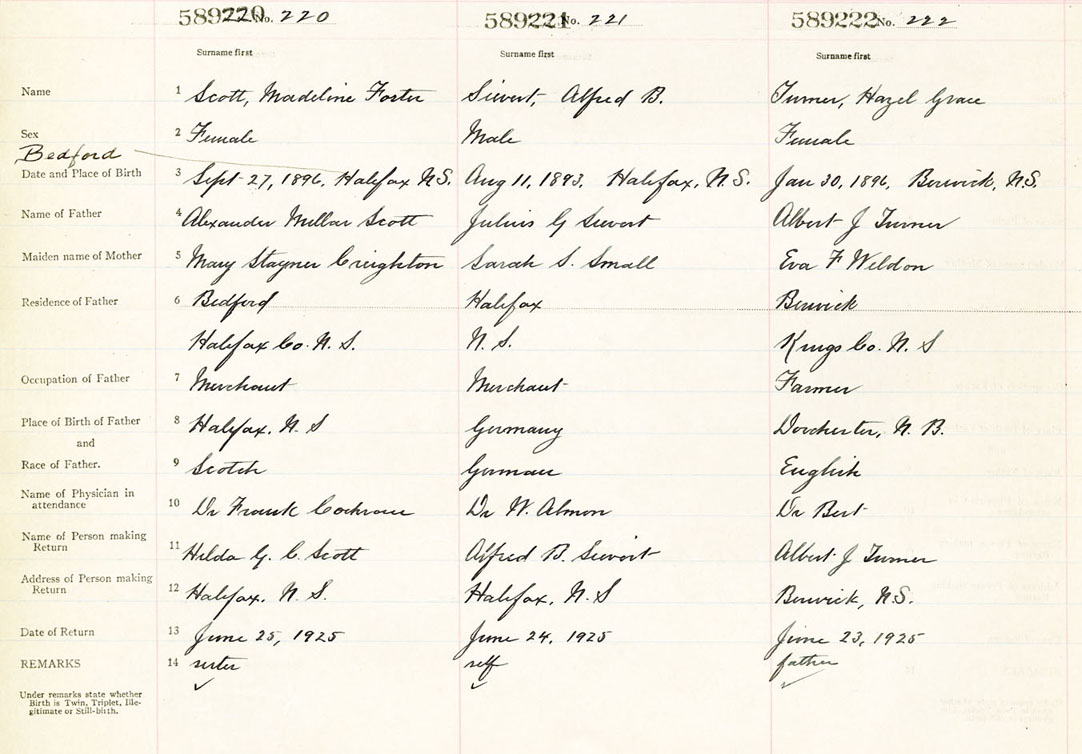 589220 No. 220 589221 No. 221 589222 No. 222
Surname first Surname first Surname first
Name 1 Scott, Madeline Foster Sievert, Alfred B. Turner, Hazel Grace
Sex 2 Female Male Female
Bedford
Date and Place of Birth 3 Sept 27, 1896, Halifax N.S. Aug 11, 1893, Halifax, N.S. Jan 30, 1896, Berwick, N.S.
Name of Father 4 Alexander Millar Scott Julius G Sievert Albert J Turner
Maiden name of Mother 5 Mary Stayner Creighton Sarah S. Small Eva F Weldon
Residence of Father 6 Bedford Halifax Berwick
Halifax Co. N. S. N. S. Kings Co. N. S
Occupation of Father 7 Merchant Merchant Farmer
Place of Birth of Father 8 Halifax, N. S Germany Dorchester, N. B.
and
Race of Father. 9 Scotch German English
Name of Physician in
attendance 10 Dr Frank Cochrane Dr W. Almon Dr Bert
Name of Person making
Return 11 Hilda G. C. Scott Alfred B. Sievert Albert J Turner
Address of Person making
Return 12 Halifax, N. S. Halifax, N. S Berwick, N.S.
Date of Return 13 June 25, 1925 June 24, 1925 June 23, 1925
REMARKS 14 sister self father
Under remarks state whether
Birth is Twin, Triplet, Ille-
gitimate or Still-birth.